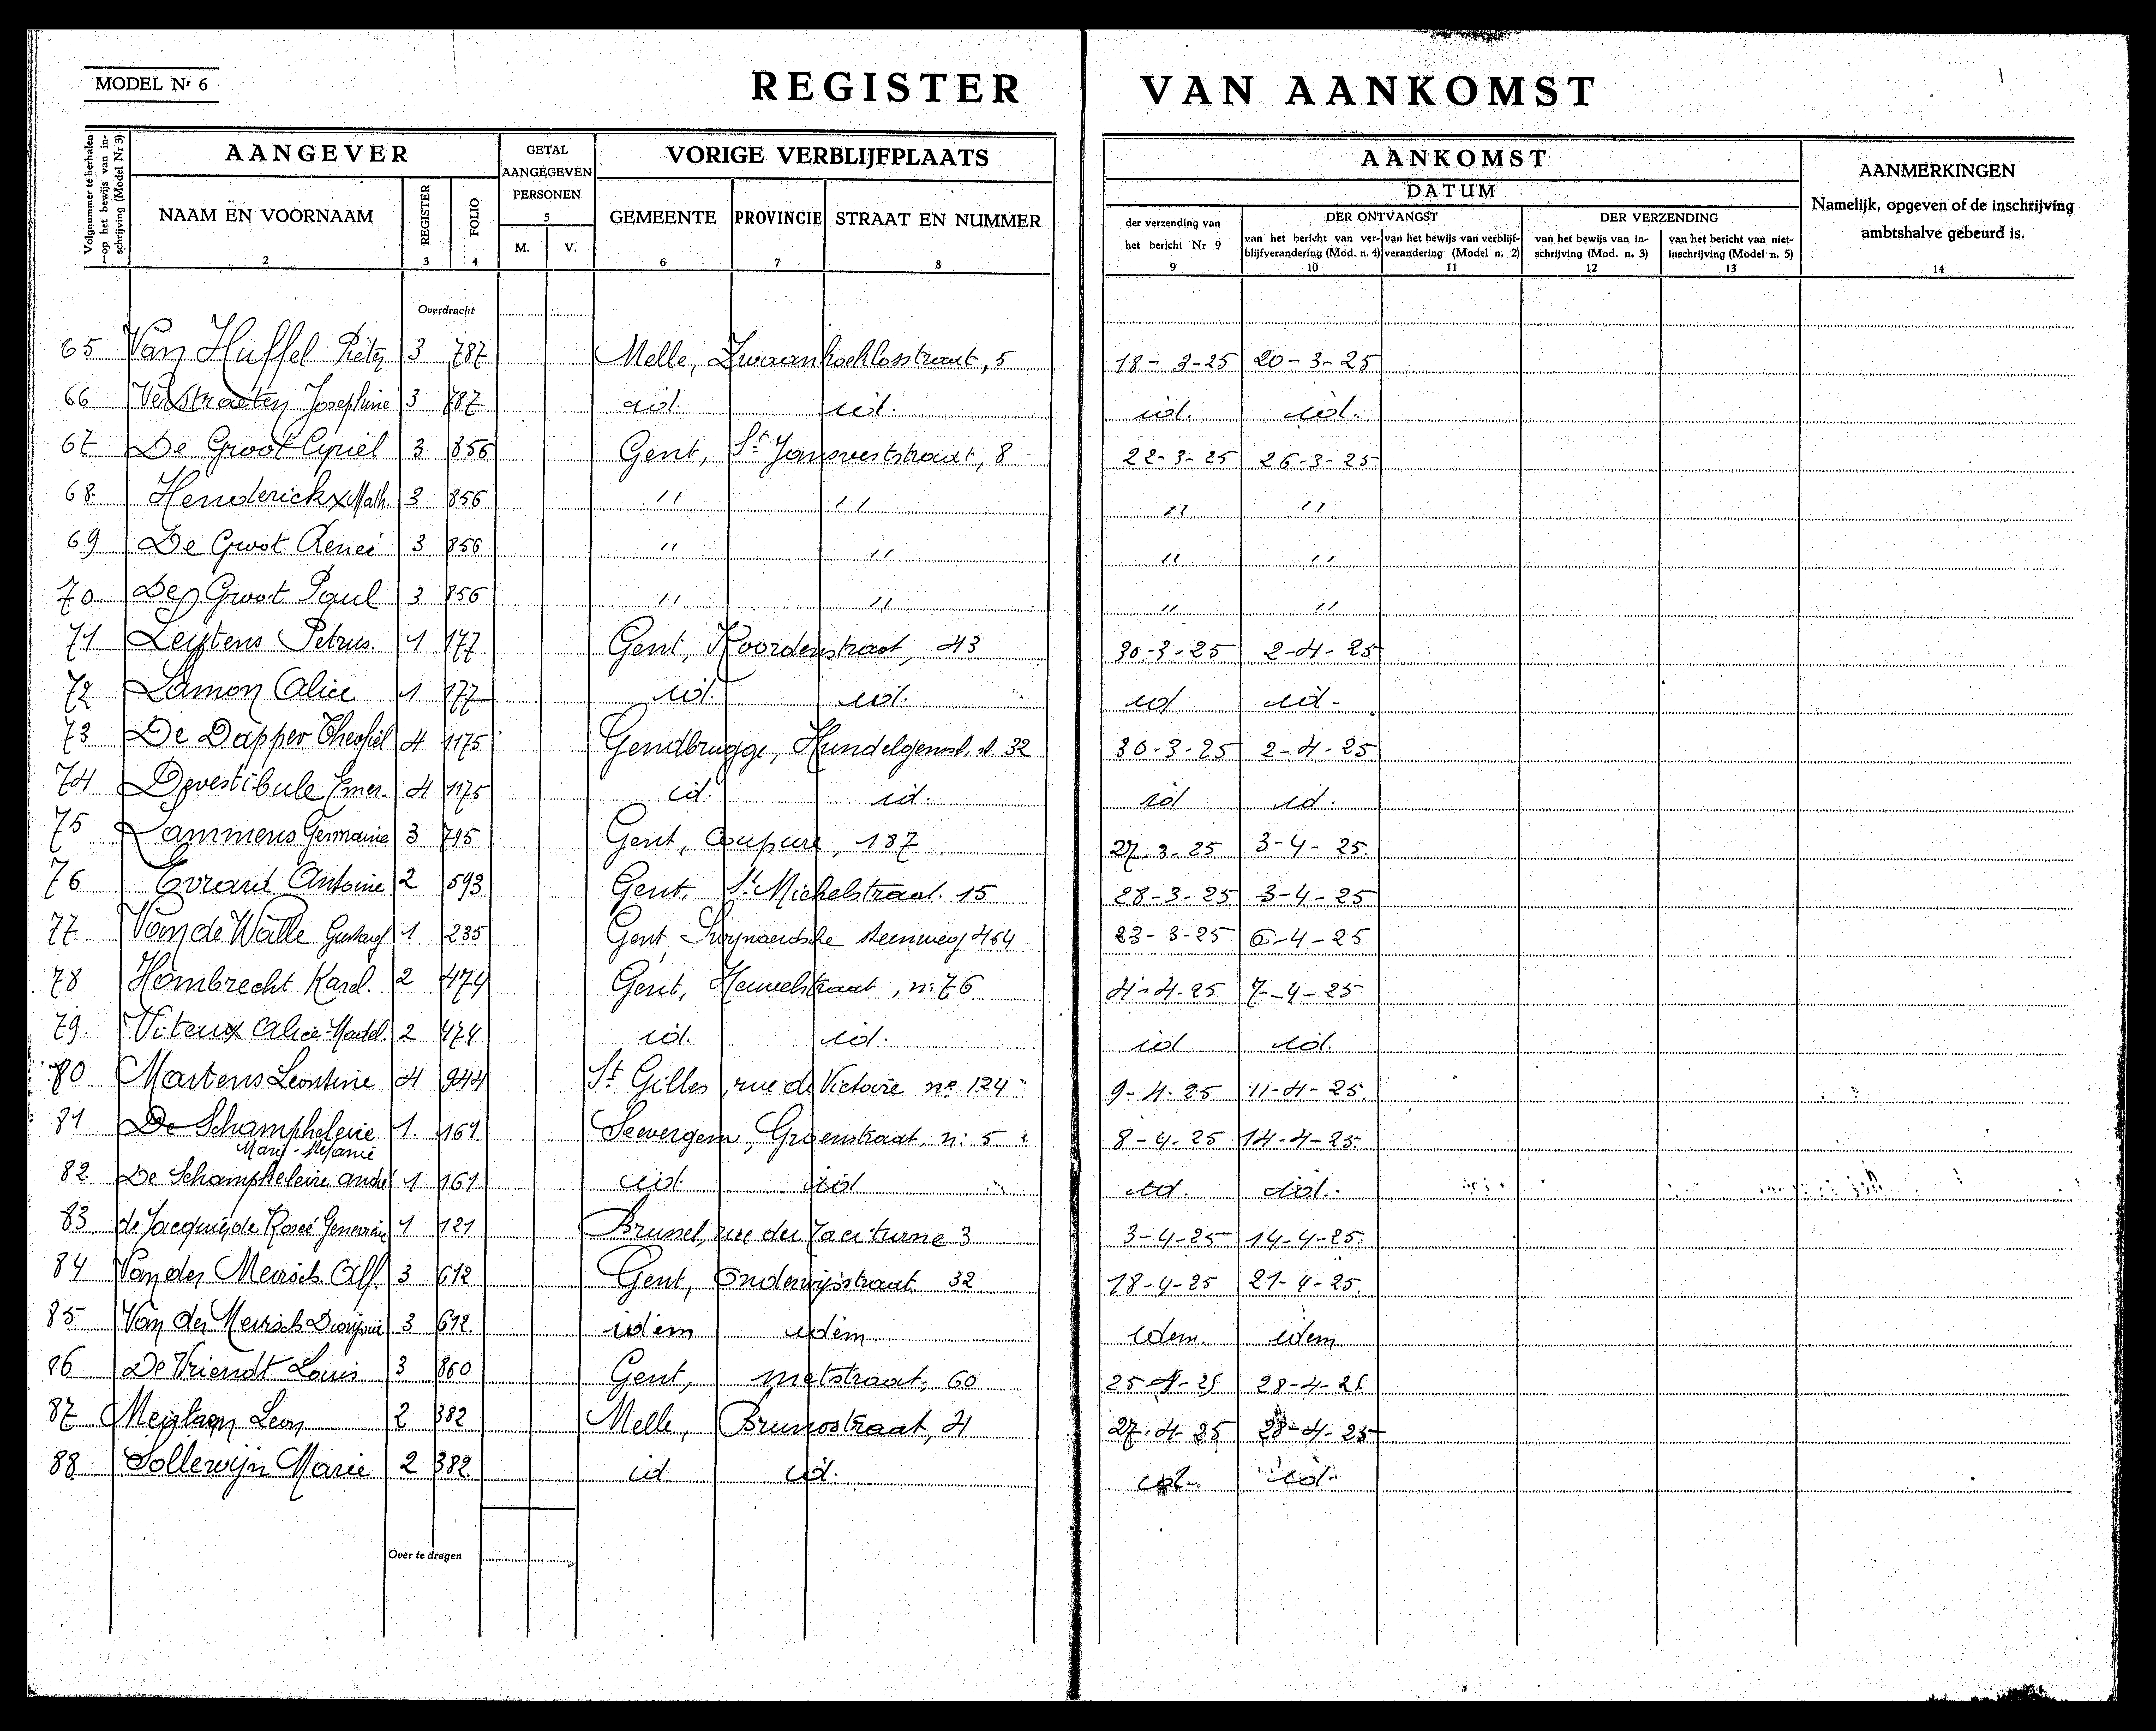 MODEL Nr 6
REGISTER VAN AANKOMST
Volgnummer te herhalen op het bewijs van inschrijving (Model Nr 3)
AANGEVER
GETAL AANGEGEVEN PERSONEN
VORIGE VERBLIJFPLAATS
AANKOMST
DATUM
AANMERKINGEN
Namelijk, opgeven of de inschrijving
ambtshalve gebeurd is.
NAAM EN VOORNAAM REGISTER FOLIO M. V. GEMEENTE PROVINCIE STRAAT EN NUMMER
der verzending van het bericht Nr 9
DER ONTVANGST
van het bericht van verblijfverandering (Mod. n. 4) van het bewijs van verblijfverandering (Model n. 2)
DER VERZENDING
van het bewijs van inschrijving (Mod. n. 3) van het bericht van niet-inschrijving (Model n. 5)
1 2 3 4 5 6 7 8 9 10 11 12 13 14
Overdracht
65 Van Huffel 3 787 Melle, 5 18-3-25 20-3-25
66 Verstraeten Josephine 3 787 id. id. id. id.
67 De Groot Cyriel 3 856 Gent, St Jansveststraat, 8 22-3-25 26-3-25
68 Henderickx Math. 3 856 " " " "
69 De Groot Reneé 3 856 " " " "
70 De Groot Paul 3 856 " " " "
71 Leytens Petrus. 1 177 Gent, Koordenstraat, 43 30-3-25 2-4-25
72 Lamon Alice 1 177 id. id. id id-
73 De Dapper Theofiel 4 1175 Gendbrugge, 32 30-3-25 2-4-25
74 Devestibule 4 1175 id. id. id id.
75 Lammens Germaine 3 795 Gent, Coupure, 187 27-3-25 3-4-25.
76 Evrard Antoine 2 593 Gent, St Michelstraat. 15 28-3-25 3-4-25
77 Van de Walle Gustaaf 1 235 Gent steenweg 464 23-3-25 6-4-25
78 Hombrecht Karel. 2 474 Gent, n: 76 4-4-25 7-4-25
79. Viteux Alice-Madel. 2 474 id. id. id id.
80 Martens Leontine 4 944 St Gilles, rue de Victoire no 124 9-4-25 11-4-25.
81 De Schampheleire 1. 161 Seevergem, Groenstraat, n: 5 8-4-25 14-4-25.
Marie-Melanie
82. De Schampheleire André 1 161 id. id id. id.
83 de Jacquis de Rosée 1 121 Brussel, rue du Taciturne 3 3-4-25 14-4-25.
84 Van der Meirsch Alf. 3 612 Gent, Onderwijsstraat 32 18-4-25 21-4-25.
85 Van der Meirsch 3 612. idem idem. idem. idem.
86 De Vriendt Louis 3 860 Gent, metstraat, 60 25-4-25 28-4-25
87 Leon 2 382 Melle, Brunostraat, 4 27-4-25 28-4-25
88. Sollewijn Marie 2 382. id id. id. id.
Over te dragen